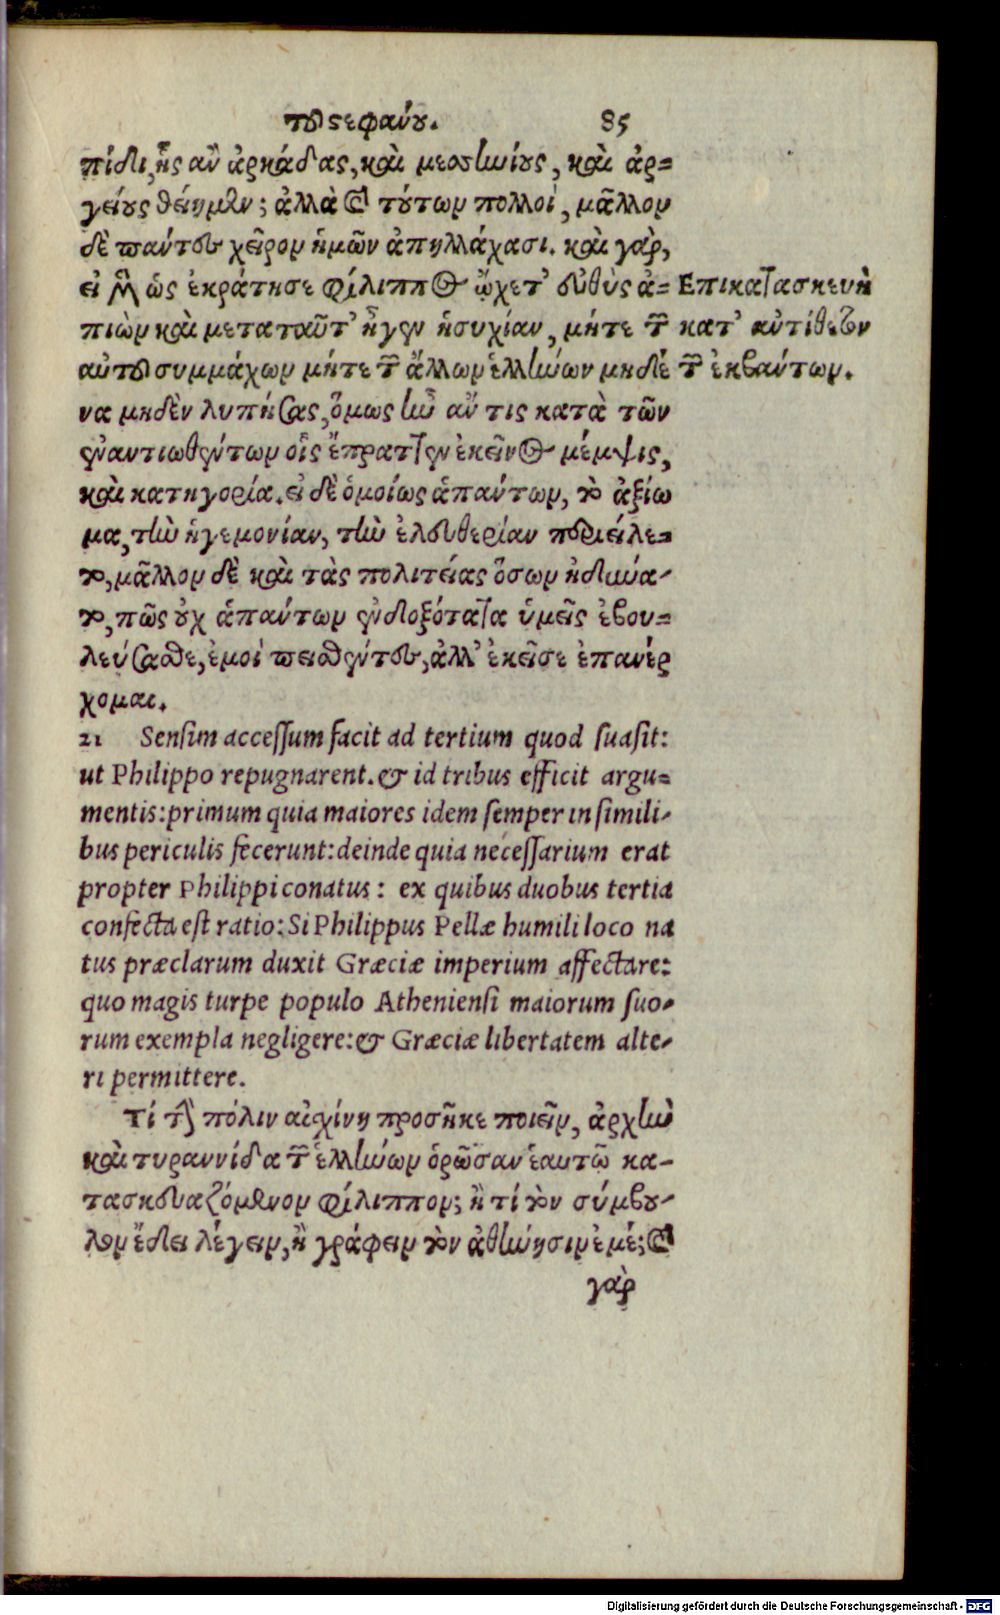 τοῦ στεφάνου. 85
πίδι, ἧς ἂν ἀρκάδας, καὶ μεσσηνίους, καὶ ἀρ=
γείους θείημεν; ἀλλὰ καὶ τούτων πολλοὶ, μᾶλλον
δὲ πάντες χεῖρον ἡμῶν ἀπηλλάχασι. καὶ γὰρ,
εἰ μὲν ὡς ἐκράτησε φίλιππος ᾤχετ' εὐθὺς ἀ=
πιὼν καὶ μετὰ ταῦτ' ἦγεν ἡσυχίαν, μήτε τῶν
αὐτοῦ συμμάχων μήτε τῶν ἄλλων ἑλλήνων μηδέ
να μηδὲν λυπήσας, ὅμως ἦν ἄν τις κατὰ τῶν
ἐναντιωθέντων οἷς ἔπραττεν ἐκεῖνος μέμψις,
καὶ κατηγορία. εἰ δὲ ὁμοίως ἁπάντων, τὸ ἀξίω
μα, τὴν ἡγεμονίαν, τὴν ἐλευθερίαν περιείλε=
το, μᾶλλον δὲ καὶ τὰς πολιτείας ὅσων ἠδύνα-
το, πῶς οὐχ ἁπάντων ἐνδοξότατα ὑμεῖς ἐβου=
λεύσασθε, ἐμοὶ πεισθέντες, ἀλλ' ἐκεῖσε ἐπανέρ
χομαι.
Επικατασκευὴ
κατ' ἀντίθεσιν
τῶν ἐκβάντων.
21 Sensim accessum facit ad tertium quod suasit:
ut Philippo repugnarent. & id tribus efficit argu=
mentis: primum quia maiores idem semper in simili-
bus periculis fecerunt: deinde quia necessarium erat
propter Philippi conatus: ex quibus duobus tertia
confecta est ratio: Si Philippus Pellæ humili loco na
tus præclarum duxit Græciæ imperium affectare:
quo magis turpe populo Atheniensi maiorum suo-
rum exempla negligere: & Græciæ libertatem alte-
ri permittere.
Τί τὴν πόλιν αἰσχίνη προσῆκε ποιεῖν, ἀρχὴν
καὶ τυραννίδα τῶν ἑλλήνων ὁρῶσαν ἑαυτῷ κα-
τασκευαζόμενον φίλιππον; ἢ τί τὸν σύμβου-
λον ἔδει λέγειν, ἢ γράφειν τὸν ἀθήνησιν ἐμέ; καὶ
γὰρ
Digitalisierung gefördert durch die Deutsche Forschungsgemeinschaft - DFG